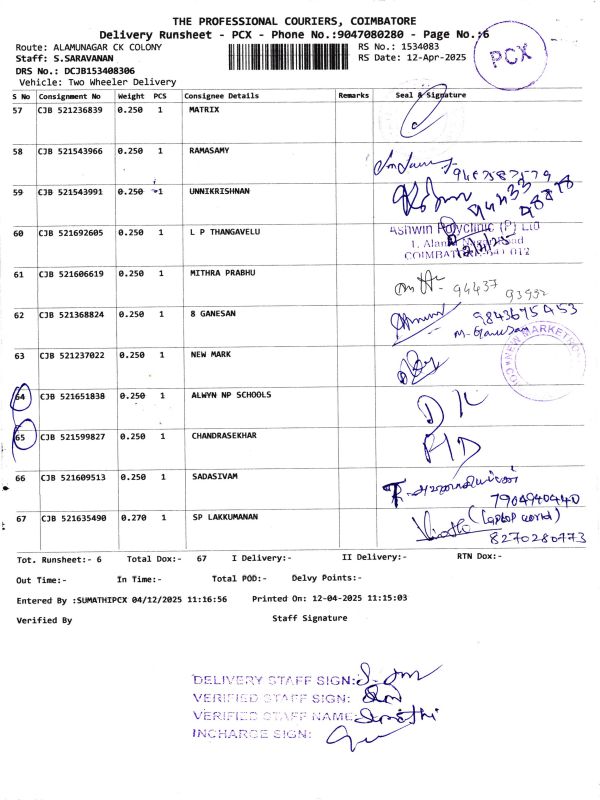 THE PROFESSIONAL COURIERS, COIMBATORE
Delivery Runsheet - PCX - Phone No.:9047080280 - Page No.:6
Route: ALAMUNAGAR CK COLONY
RS No.: 1534083
Staff: S.SARAVANAN
RS Date: 12-Apr-2025
PCX
DRS No.: DCJB153408306
Vehicle: Two Wheeler Delivery
S No Consignment No Weight PCS Consignee Details Remarks Seal & Signature
57 CJB 521236839 0.250 1 MATRIX
58 CJB 521543966 0.250 1 RAMASAMY
59 CJB 521543991 0.250 1 UNNIKRISHNAN
60 CJB 521692605 0.250 1 L P THANGAVELU
Ashwin Polyclinic (P) Ltd
12/4/25
61 CJB 521606619 0.250 1 MITHRA PRABHU
94437
93932
62 CJB 521368824 0.250 1 B GANESAN
9843675453
M-Ganesan
63 CJB 521237022 0.250 1 NEW MARK
NEW MARKETING
64 CJB 521651838 0.250 1 ALWYN NP SCHOOLS
65 CJB 521599827 0.250 1 CHANDRASEKHAR
66 CJB 521609513 0.250 1 SADASIVAM
7904940440
67 CJB 521635490 0.270 1 SP LAKKUMANAN
(laptop world)
8270280773
Tot. Runsheet:- 6 Total Dox:- 67 I Delivery:- II Delivery:- RTN Dox:-
Out Time:- In Time:- Total POD:- Delvy Points:-
Entered By :SUMATHIPCX 04/12/2025 11:16:56 Printed On: 12-04-2025 11:15:03
Verified By Staff Signature
DELIVERY STAFF SIGN:
VERIFIED STAFF SIGN:
VERIFIED STAFF NAME: Sumathi
INCHARGE SIGN: